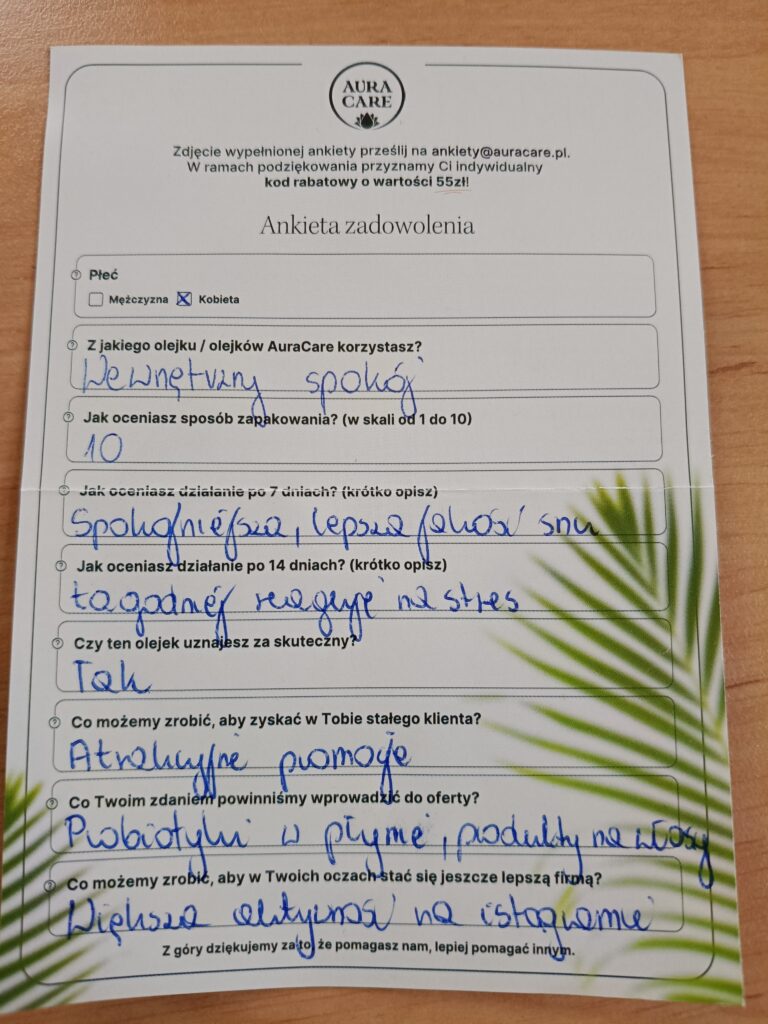 AURA
CARE
Zdjęcie wypełnionej ankiety prześlij na ankiety@auracare.pl.
W ramach podziękowania przyznamy Ci indywidualny
kod rabatowy o wartości 55zł!
Ankieta zadowolenia
Płeć
Mężczyzna Kobieta
Z jakiego olejku / olejków AuraCare korzystasz?
Wewnętrzny spokój
Jak oceniasz sposób zapakowania? (w skali od 1 do 10)
10
Jak oceniasz działanie po 7 dniach? (krótko opisz)
Spokojniejsza, lepsza jakość snu
Jak oceniasz działanie po 14 dniach? (krótko opisz)
Łagodniej reaguję na stres
Czy ten olejek uznajesz za skuteczny?
Tak
Co możemy zrobić, aby zyskać w Tobie stałego klienta?
Atrakcyjne promocje
Co Twoim zdaniem powinniśmy wprowadzić do oferty?
Probiotyki w płynie, produkty na włosy
Co możemy zrobić, aby w Twoich oczach stać się jeszcze lepszą firmą?
Większa aktywność na instagramie
Z góry dziękujemy za to, że pomagasz nam, lepiej pomagać innym.